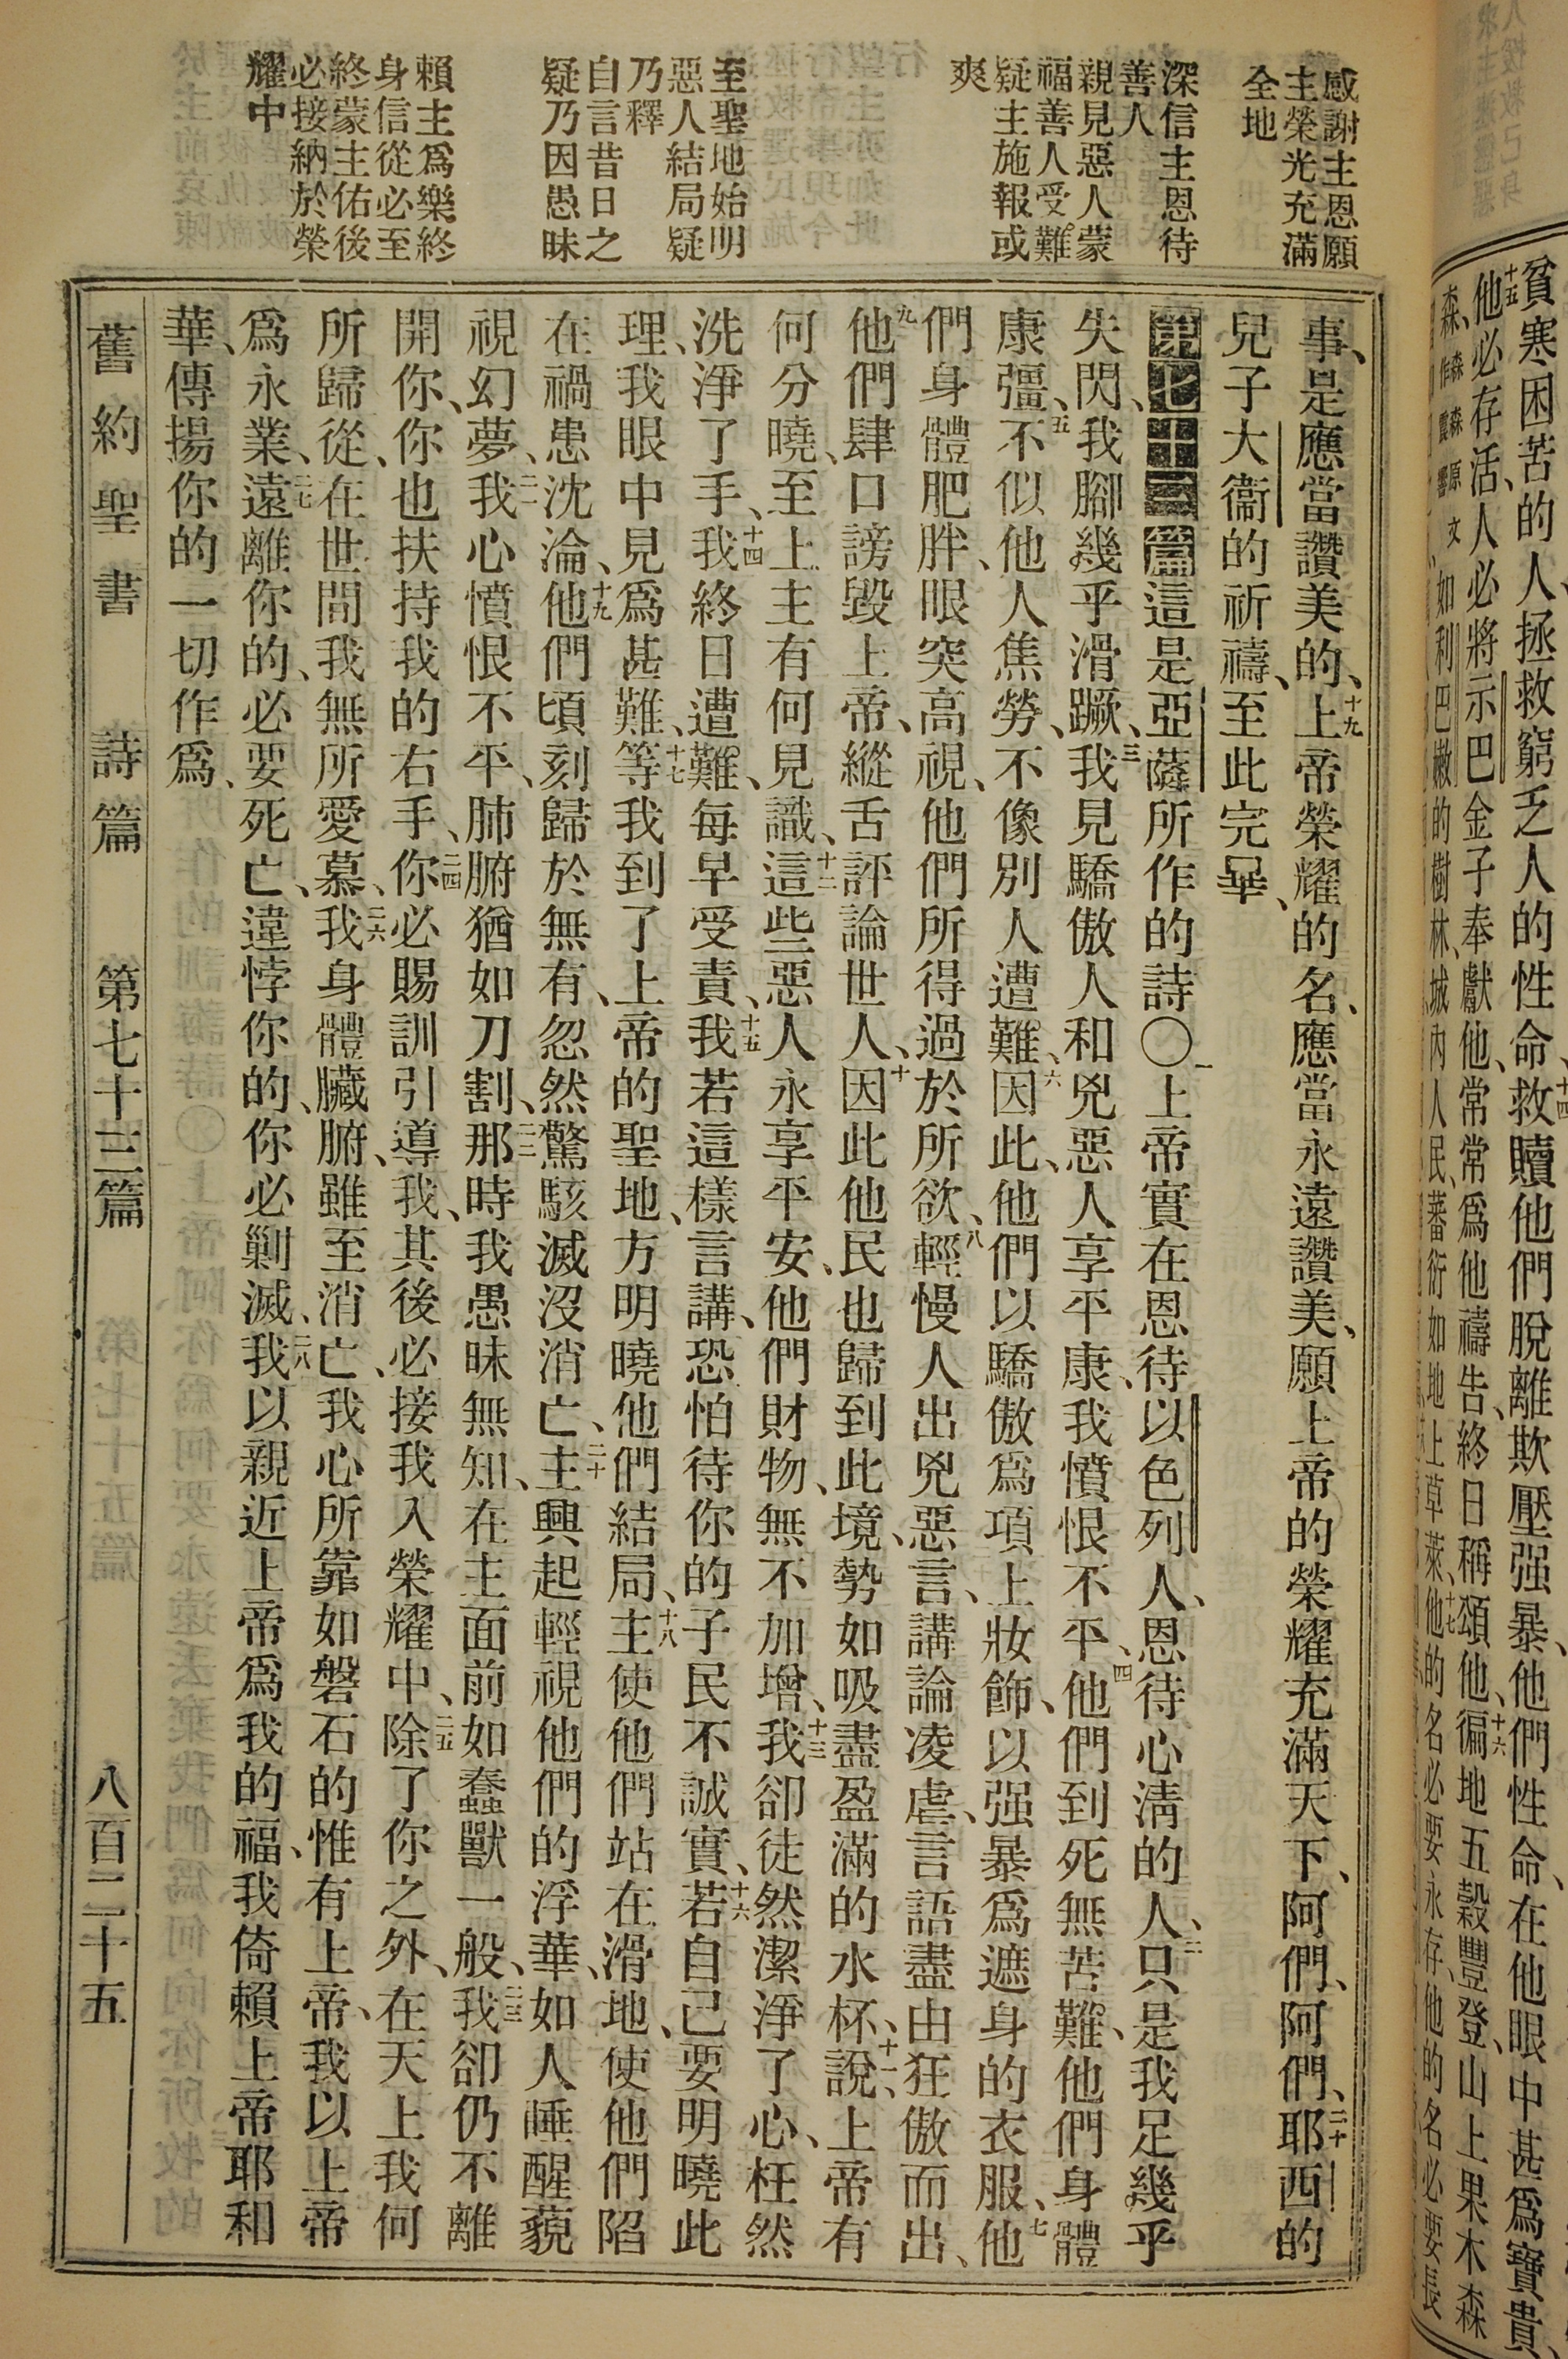 貧寒困苦的人、拯救窮乏人的性命、十四救贖他們脫離欺壓强暴、他們性命、在他眼中甚爲寶貴、
十五他必存活、人必將示巴金子奉獻他、常常爲他禱告、終日稱頌他、十六徧地五穀豐登、山上果木森
森、如利巴嫩的樹林、城內人民、蕃衍如地上草萊、十七他的名必要永存、他的名必要長
感謝主恩願
主榮光充滿
全地
深信主恩待
善人
親見惡人蒙
福善人受難
疑主施報或
爽
至聖地始明
惡人結局疑
乃釋
自言昔日之
疑乃因愚昧
賴主爲樂終
身信從必至
終蒙主佑後
必接納於榮
耀中
事、是應當讚美的、十九上帝榮耀的名、應當永遠讚美、願上帝的榮耀充滿天下、阿們、阿們、二十耶西的
兒子大衞的祈禱、至此完畢、
第七十三篇這是亞薩所作的詩〇一上帝實在恩待以色列人、恩待心淸的人、二只是我足幾乎
失閃、我腳幾乎滑蹶、三我見驕傲人和兇惡人享平康、我憤恨不平、四他們到死無苦難、他們身體
康彊、五不似他人焦勞、不像別人遭難、六因此、他們以驕傲爲項上妝飾、以强暴爲遮身的衣服、七他
們身體肥胖、眼突高視、他們所得過於所欲、八輕慢人出兇惡言、講論凌虐、言語盡由狂傲而出、
九他們肆口謗毀上帝、縱舌評論世人、十因此他民也歸到此境、勢如吸盡盈滿的水杯、十一說、上帝有
何分曉、至上主有何見識、十二這些惡人永享平安、他們財物、無不加增、十三我卻徒然潔淨了心、枉然
洗淨了手、十四我終日遭難、每早受責、十五我若這樣言講、恐怕待你的子民不誠實、十六若自己要明曉此
理、我眼中見爲甚難、十七等我到了上帝的聖地、方明曉他們結局、十八主使他們站在滑地、使他們陷
在禍患沈淪、十九他們頃刻歸於無有、忽然驚駭滅沒消亡、二十主興起輕視他們的浮華、如人睡醒藐
視幻夢、二一我心憤恨不平、肺腑猶如刀割、二二那時我愚昧無知、在主面前如蠢獸一般、二三我卻仍不離
開你、你也扶持我的右手、二四你必賜訓引導我、其後必接我入榮耀中、二五除了你之外、在天上我何
所歸從、在世間我無所愛慕、二六我身體臟腑、雖至消亡、我心所靠如磐石的惟有上帝、我以上帝
爲永業、二七遠離你的、必要死亡、違悖你的、你必剿滅、二八我以親近上帝爲我的福、我倚賴上帝耶和
華、傳揚你的一切作爲、
舊約聖書 詩篇 第七十三篇 八百二十五